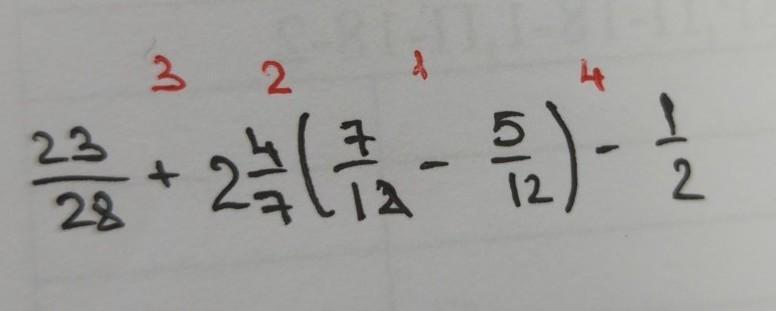 3 2 1 4
23/28 + 2 4/7 (7/12 - 5/12) - 1/2